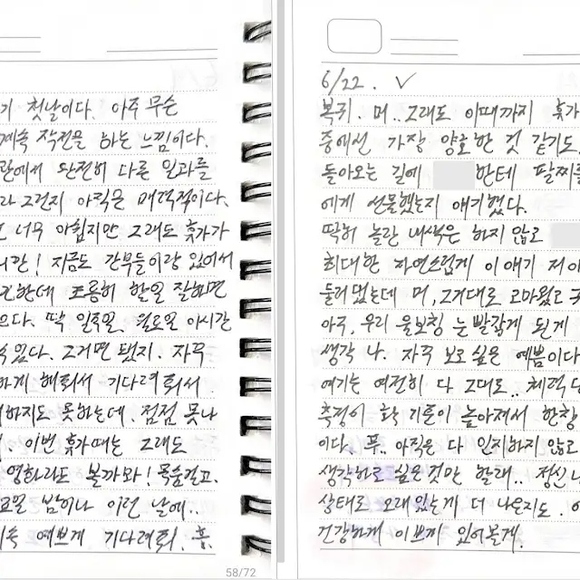 기 첫날이다. 아주 무슨
계속 작전을 하는 느낌이다.
관에서 완전히 다른 일과를
라 그런지 아직은 매력적이다.
너무 아쉽지만 그래도 휴가가
니까! 지금도 간부들이랑 있어서
건한데 조용히 할일 잘하면
딱 일주일, 월요일 아시간
있다. 그거면 됐지. 자꾸
하게 해줘서 기다려줘서
하지도 못하는데. 점점 못나
이번 휴가때는 그래도
영화라도 볼까봐! 목숨걸고.
요일 밤이나 이런 날에..
속 예쁘게 기다려줘. 흠.
58/72
6/22. ✓
복귀. 머.. 그래도 이때까지 휴가
중에선 가장 양호한 것 같기도.
돌아오는 길에 한테 팔찌를
에게 선물했는지 얘기했다.
딱히 놀란 내색은 하지 않고
최대한 자연스럽게 이얘기 저
둘러댔는데 머, 그거대로 고마웠고
아주, 우리 울보칭 눈빨갛게 된게
생각 나. 자꾸 보고싶은 예쁨이다
여기는 여전히 다 그대로.. 체력
측정이 확 기준이 높아져서 한창
이다. 푸.. 아직은 다 인지하지 않고
생각하고 싶은것만 할래.. 정신
상태로 오래있는게 더 나은지도.
건강하게 이쁘게 있어볼게.